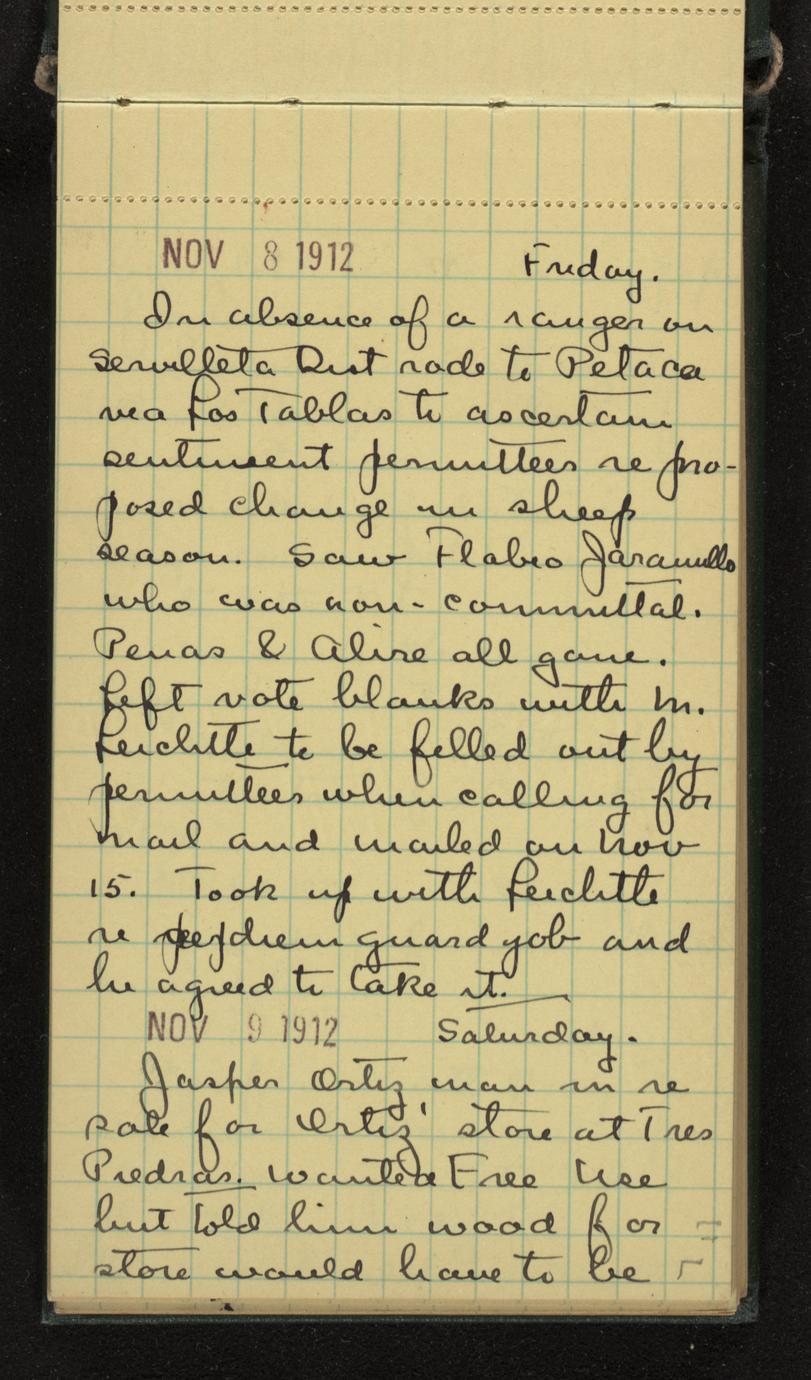 NOV 8 1912 Friday.
In absence of a ranger on
Servilleta Dist rode to Petaca
via Los Tablas to ascertain
sentiment permittees re pro-
posed change in sheep
season. Saw Flabio Jaramillo
who was non-committal.
Penas & Alire all gone.
Left vote blanks with M.
Leichtte to be filled out by
permittees when calling for
mail and mailed on Nov
15. Took up with Leichtte
re per diem guard job and
he agreed to take it.
NOV 9 1912 Saturday.
Jasper Ortiz man in re
sale for Ortiz' store at Tres
Piedras. Wanted Free Use
but told him wood for
store would have to be